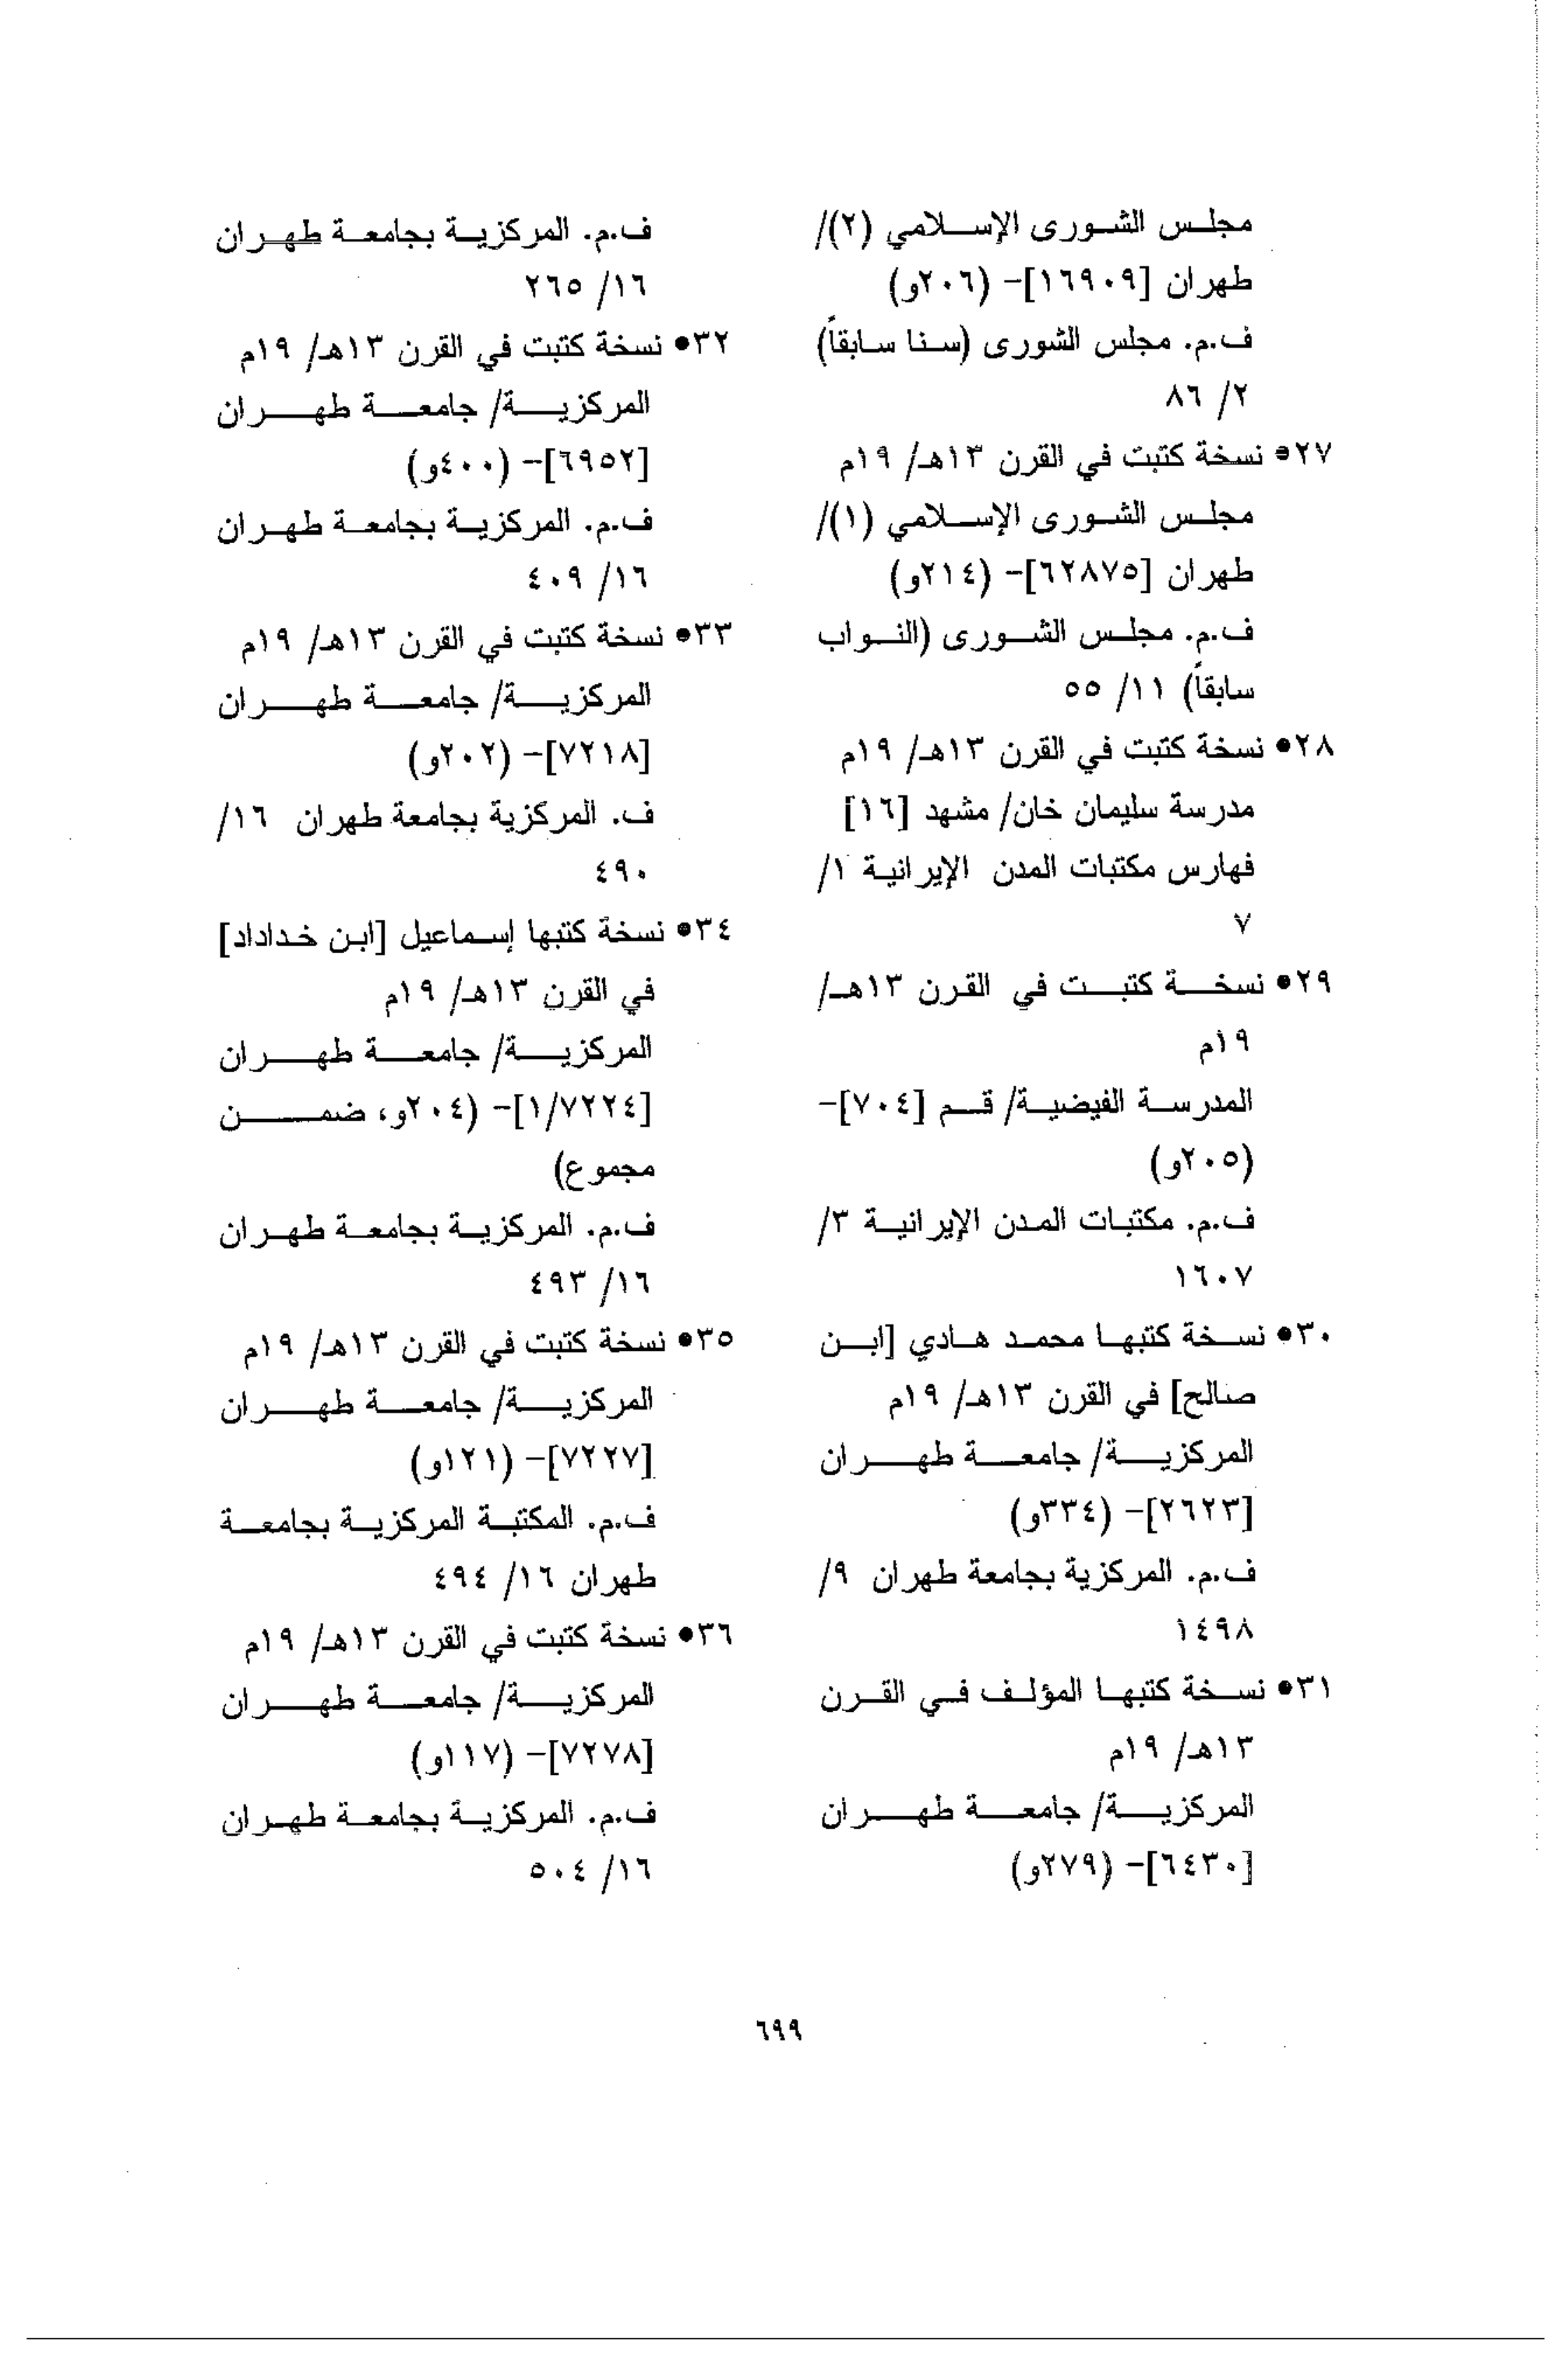 مجلس الشورى الإسلامي (٢)/
طهران [١٦٩٠٩]- (٢٠٦و)
ف.م. مجلس الشورى (سنا سابقاً)
٢/ ٨٦
٢٧• نسخة كتبت في القرن ١٣هـ/ ١٩م
مجلس الشورى الإسلامي (١)/
طهران [٦٢٨٧٥]- (٢١٤و)
ف.م. مجلس الشورى (النواب
سابقاً) ١١/ ٥٥
٢٨• نسخة كتبت في القرن ١٣هـ/ ١٩م
مدرسة سليمان خان/ مشهد [١٦]
فهارس مكتبات المدن الإيرانية ١/
٧
٢٩• نسخة كتبت في القرن ١٣هـ/
١٩م
المدرسة الفيضية/ قم [٧٠٤]-
(٢٠٥و)
ف.م. مكتبات المدن الإيرانية ٣/
١٦٠٧
٣٠• نسخة كتبها محمد هادي [ابن
صالح] في القرن ١٣هـ/ ١٩م
المركزية/ جامعة طهران
[٢٦٢٣]- (٣٣٤و)
ف.م. المركزية بجامعة طهران ٩/
١٤٩٨
٣١• نسخة كتبها المؤلف في القرن
١٣هـ/ ١٩م
المركزية/ جامعة طهران
[٦٤٣٠]- (٢٧٩و)
ف.م. المركزية بجامعة طهران
١٦/ ٢٦٥
٣٢• نسخة كتبت في القرن ١٣هـ/ ١٩م
المركزية/ جامعة طهران
[٦٩٥٢]- (٤٠٠و)
ف.م. المركزية بجامعة طهران
١٦/ ٤٠٩
٣٣• نسخة كتبت في القرن ١٣هـ/ ١٩م
المركزية/ جامعة طهران
[٧٢١٨]- (٢٠٢و)
ف. المركزية بجامعة طهران ١٦/
٤٩٠
٣٤• نسخة كتبها إسماعيل [ابن خداداد]
في القرن ١٣هـ/ ١٩م
المركزية/ جامعة طهران
[١/٧٢٢٤]- (٢٠٤و، ضمن
مجموع)
ف.م. المركزية بجامعة طهران
١٦/ ٤٩٣
٣٥• نسخة كتبت في القرن ١٣هـ/ ١٩م
المركزية/ جامعة طهران
[٧٢٢٧]- (١٢١و)
ف.م. المكتبة المركزية بجامعة
طهران ١٦/ ٤٩٤
٣٦• نسخة كتبت في القرن ١٣هـ/ ١٩م
المركزية/ جامعة طهران
[٧٢٧٨]- (١١٧و)
ف.م. المركزية بجامعة طهران
١٦/ ٥٠٤
٦٩٩